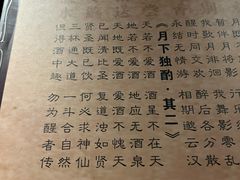 我歌月徘徊 我舞影零乱
醒时同交欢 醉后各分散
永结无情游 相期邈云汉
《月下独酌·其二》
天若不爱酒 酒星不在天
地若不爱酒 地应无酒泉
天地既爱酒 爱酒不愧天
已闻清比圣 复道浊如贤
贤圣既已饮 何必求神仙
三杯通大道 一斗合自然
但得酒中趣 勿为醒者传